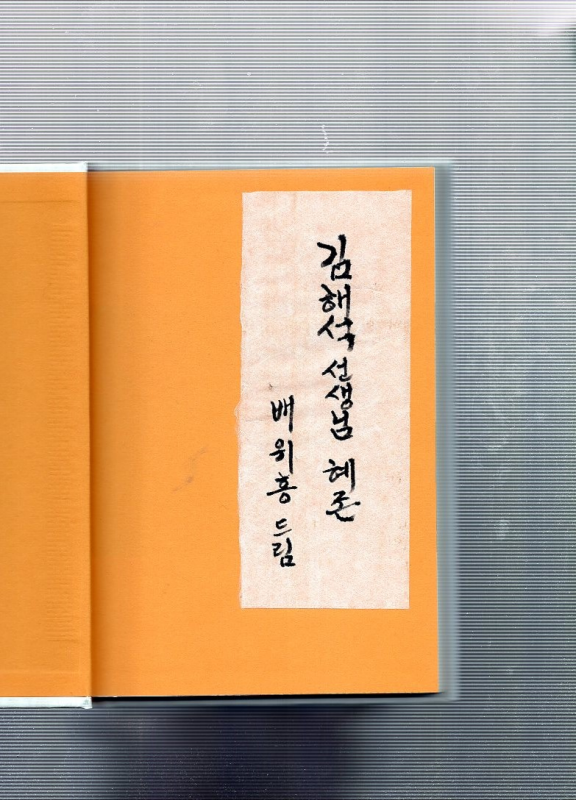 김해석 선생님 혜존
배위홍 드림